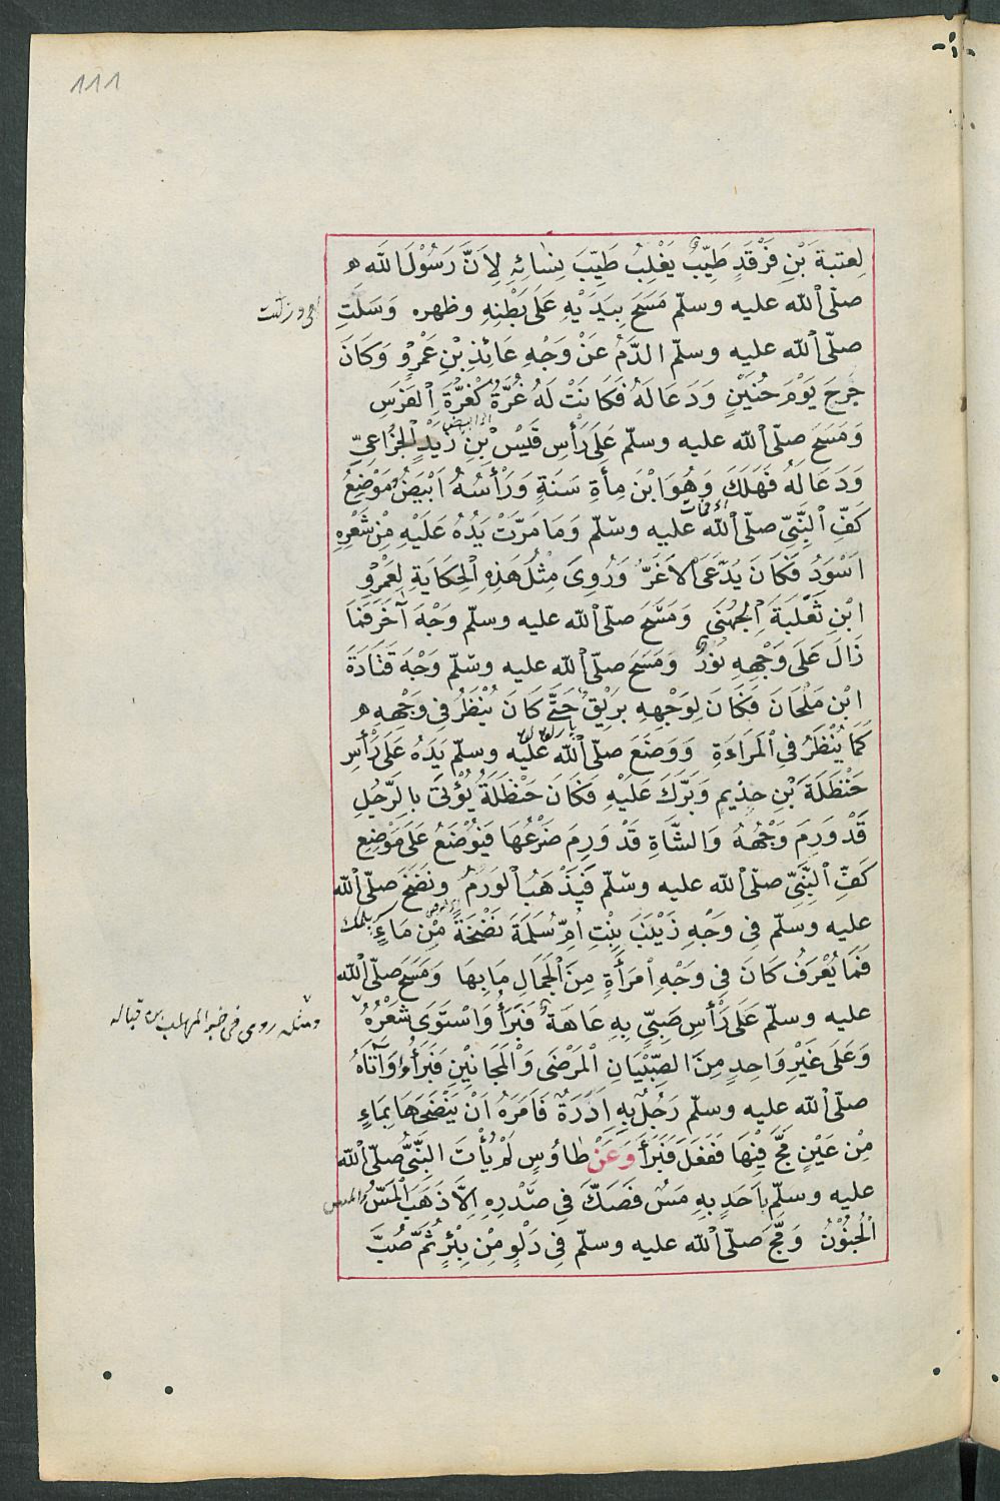 111
لِعتبة بْنِ فَرْقَدٍ طَيِّبٌ يَغْلِبُ طَيِّبَ نِسَائِهِ لِاَنَّ رَسُوْلَ الله
صلّى الله عليه وسلّم مَسَحَ بِيَدَيْهِ عَلَى بَطْنِهِ وظهره وَسَلَتَ
صلّى الله عليه وسلّم الدَّمَ عَنْ وَجْهِ عَائِذِ بْنِ عَمْرٍو وَكَانَ
جَرِحَ يَوْمَ حُنَيْنٍ وَدَعَا لَهُ فَكَانَتْ لَهُ غُرَّةٌ كَغُرَّةِ الْفَرَسِ
وَمَسَحَ صلّى الله عليه وسلّم عَلَى رَأْسِ قَيْسِ بْنِ زَيْدٍ الْجُزَاعِيِّ
وَدَعَا لَهُ فَهَلَكَ وَهُوَ ابْنَ مِأةِ سَنَةٍ وَرَأْسُهُ اَبْيَضُ وَمَوْضِعُ
كَفِّ النَّبِيِّ صلّى الله عليه وسلّم وَمَا مَرَّتْ يَدُهُ عَلَيْهِ مِنْ شَعْرِهِ
اَسْوَدُ فَكَانَ يُدْعَى الاَغَرَّ وَرُوِىَ مِثْلُ هَذِهِ الْحِكَايَةِ لِعَمْرِو
ابْنِ ثَعْلَبَةَ الْجُهَنَى وَمَسَحَ صلّى الله عليه وسلّم وَجْهَ آخَرَ فَمَا
زَالَ عَلَى وَجْهِهِ نُوْرٌ وَمَسَحَ صلّى الله عليه وسلّم وَجْهَ قَتَادَةَ
ابْنِ مَلْحَانَ فَكَانَ لِوَجْهِهِ بَرِيْقٌ حَتَّى كَانَ يُنْظَرُ فِي وَجْهِهِ
كَمَا يُنْظَرُ فِي الْمَرَاءَةِ وَوَضَعَ صلّى الله عليه وسلّم يَدَهُ عَلَى رَأْسِ
حَنْظَلَةَ بْنِ حِذِيمٍ وَبَرَّكَ عَلَيْهِ فَكَانَ حَنْظَلَةُ يُؤْتَى بِالرَّجُلِ
قَدْ وَرِمَ وَجْهُهُ وَالشَّاةِ قَدْ وَرِمَ ضَرْعُهَا فَيُوْضَعُ عَلَى مَوْضِعِ
كَفِّ النَّبِيِّ صلّى الله عليه وسلّم فَيَذْهَبُ الْوَرَمُ ونَضَحَ صلّى الله
عليه وسلّم فِي وَجْهِ زَيْنَبَ بِنْتِ اُمِّ سَلَمَةَ نَضْحَةً مِنْ مَاءٍ
فَمَا يُعْرَفُ كَانَ فِي وَجْهِ امْرَأَةٍ مِنَ الْجَمَالِ مَا بِهَا وَمَسَحَ صلّى الله
عليه وسلّم عَلَى رَأْسِ صَبِيٍّ بِهِ عَاهَةٌ فَبَرَأَ وَاسْتَوَى شَعْرُهُ
وَعَلَى غَيْرِ وَاحِدٍ مِنَ الصِّبْيَانِ الْمَرْضَى وَالْمَجَانِيْنِ فَبَرَأُوْا وَآتَاهُ
صلّى الله عليه وسلّم رَجُلٌ بِهِ اَدَرَةٌ فَاَمَرَهُ اَنْ يَنْضَحَهَا بِمَاءٍ
مِنْ عَيْنٍ مَجَّ فِيْهَا فَفَعَلَ فَبَرَأَ وَعَنْ طَاوُسٍ لَمْ يُأْتَ النَّبِيُّ صلّى الله
عليه وسلّم بِاَحَدٍ بِهِ مَسٌّ فَصَكَّ فِي صَدْرِهِ اِلاَّ ذَهَبَ الْمَسُّ والمس
الْجُنُوْنُ وَمَجَّ صلّى الله عليه وسلّم فِي دَلْوٍ مِنْ بِئْرٍ ثُمَّ صُبَّ
ومثله روى فى خبر المهلب بن قباله